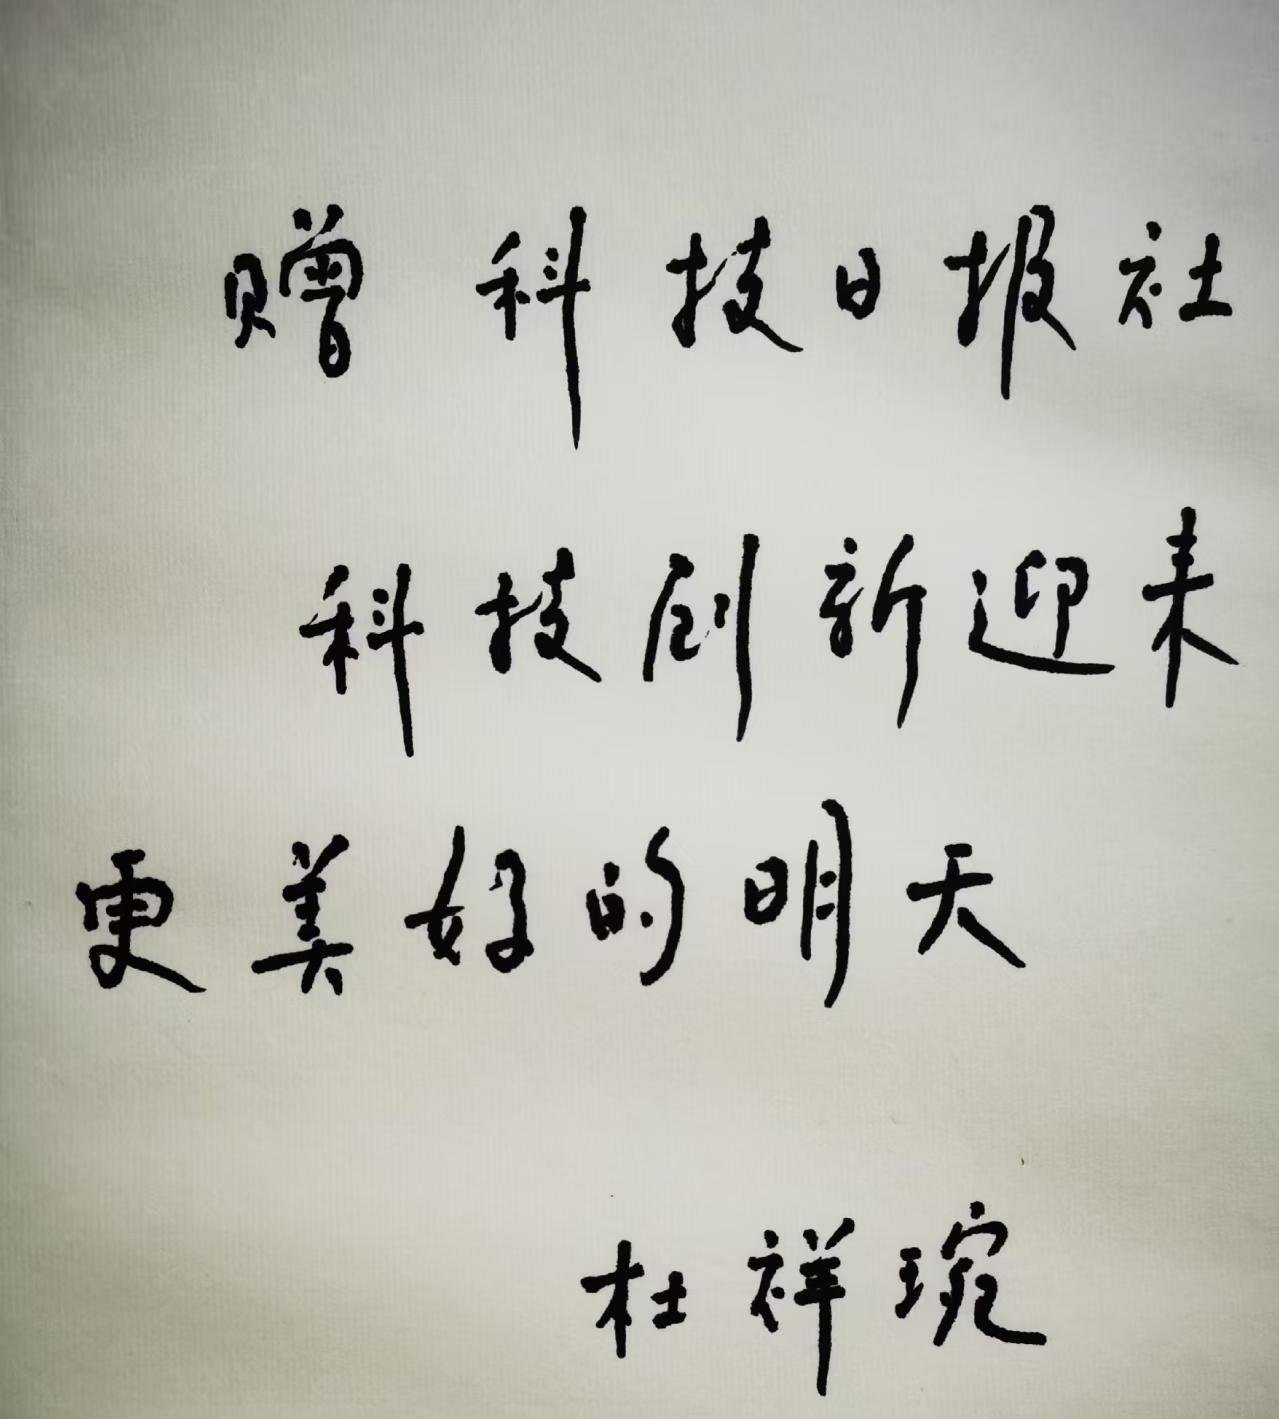 赠 科技日报社
科技创新迎来
更美好的明天
杜祥琬